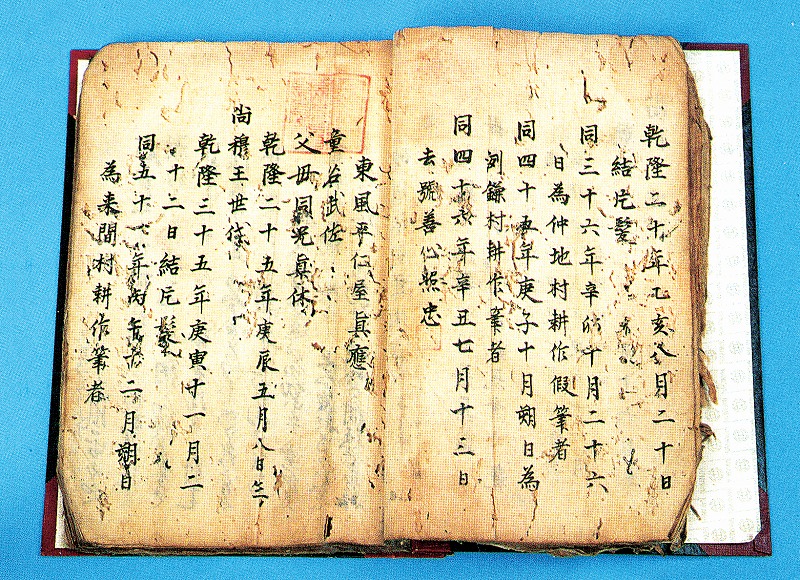 乾隆二十年乙亥八月二十日
結片髪
同三十六年辛卯十月二十六
日為仲地村耕作假筆者
同四十五年庚子十月朔日為
村耕作筆者
同四十六年辛丑七月十三日
去號善心照忠
東風平仁屋真應
童名武佐
父母同兄真休
乾隆二十五年庚辰五月八日生
尚穆王世
乾隆三十五年庚寅十一月二
十二日結片髪
同五十年丙午十二月朔日
為来間村耕作筆者